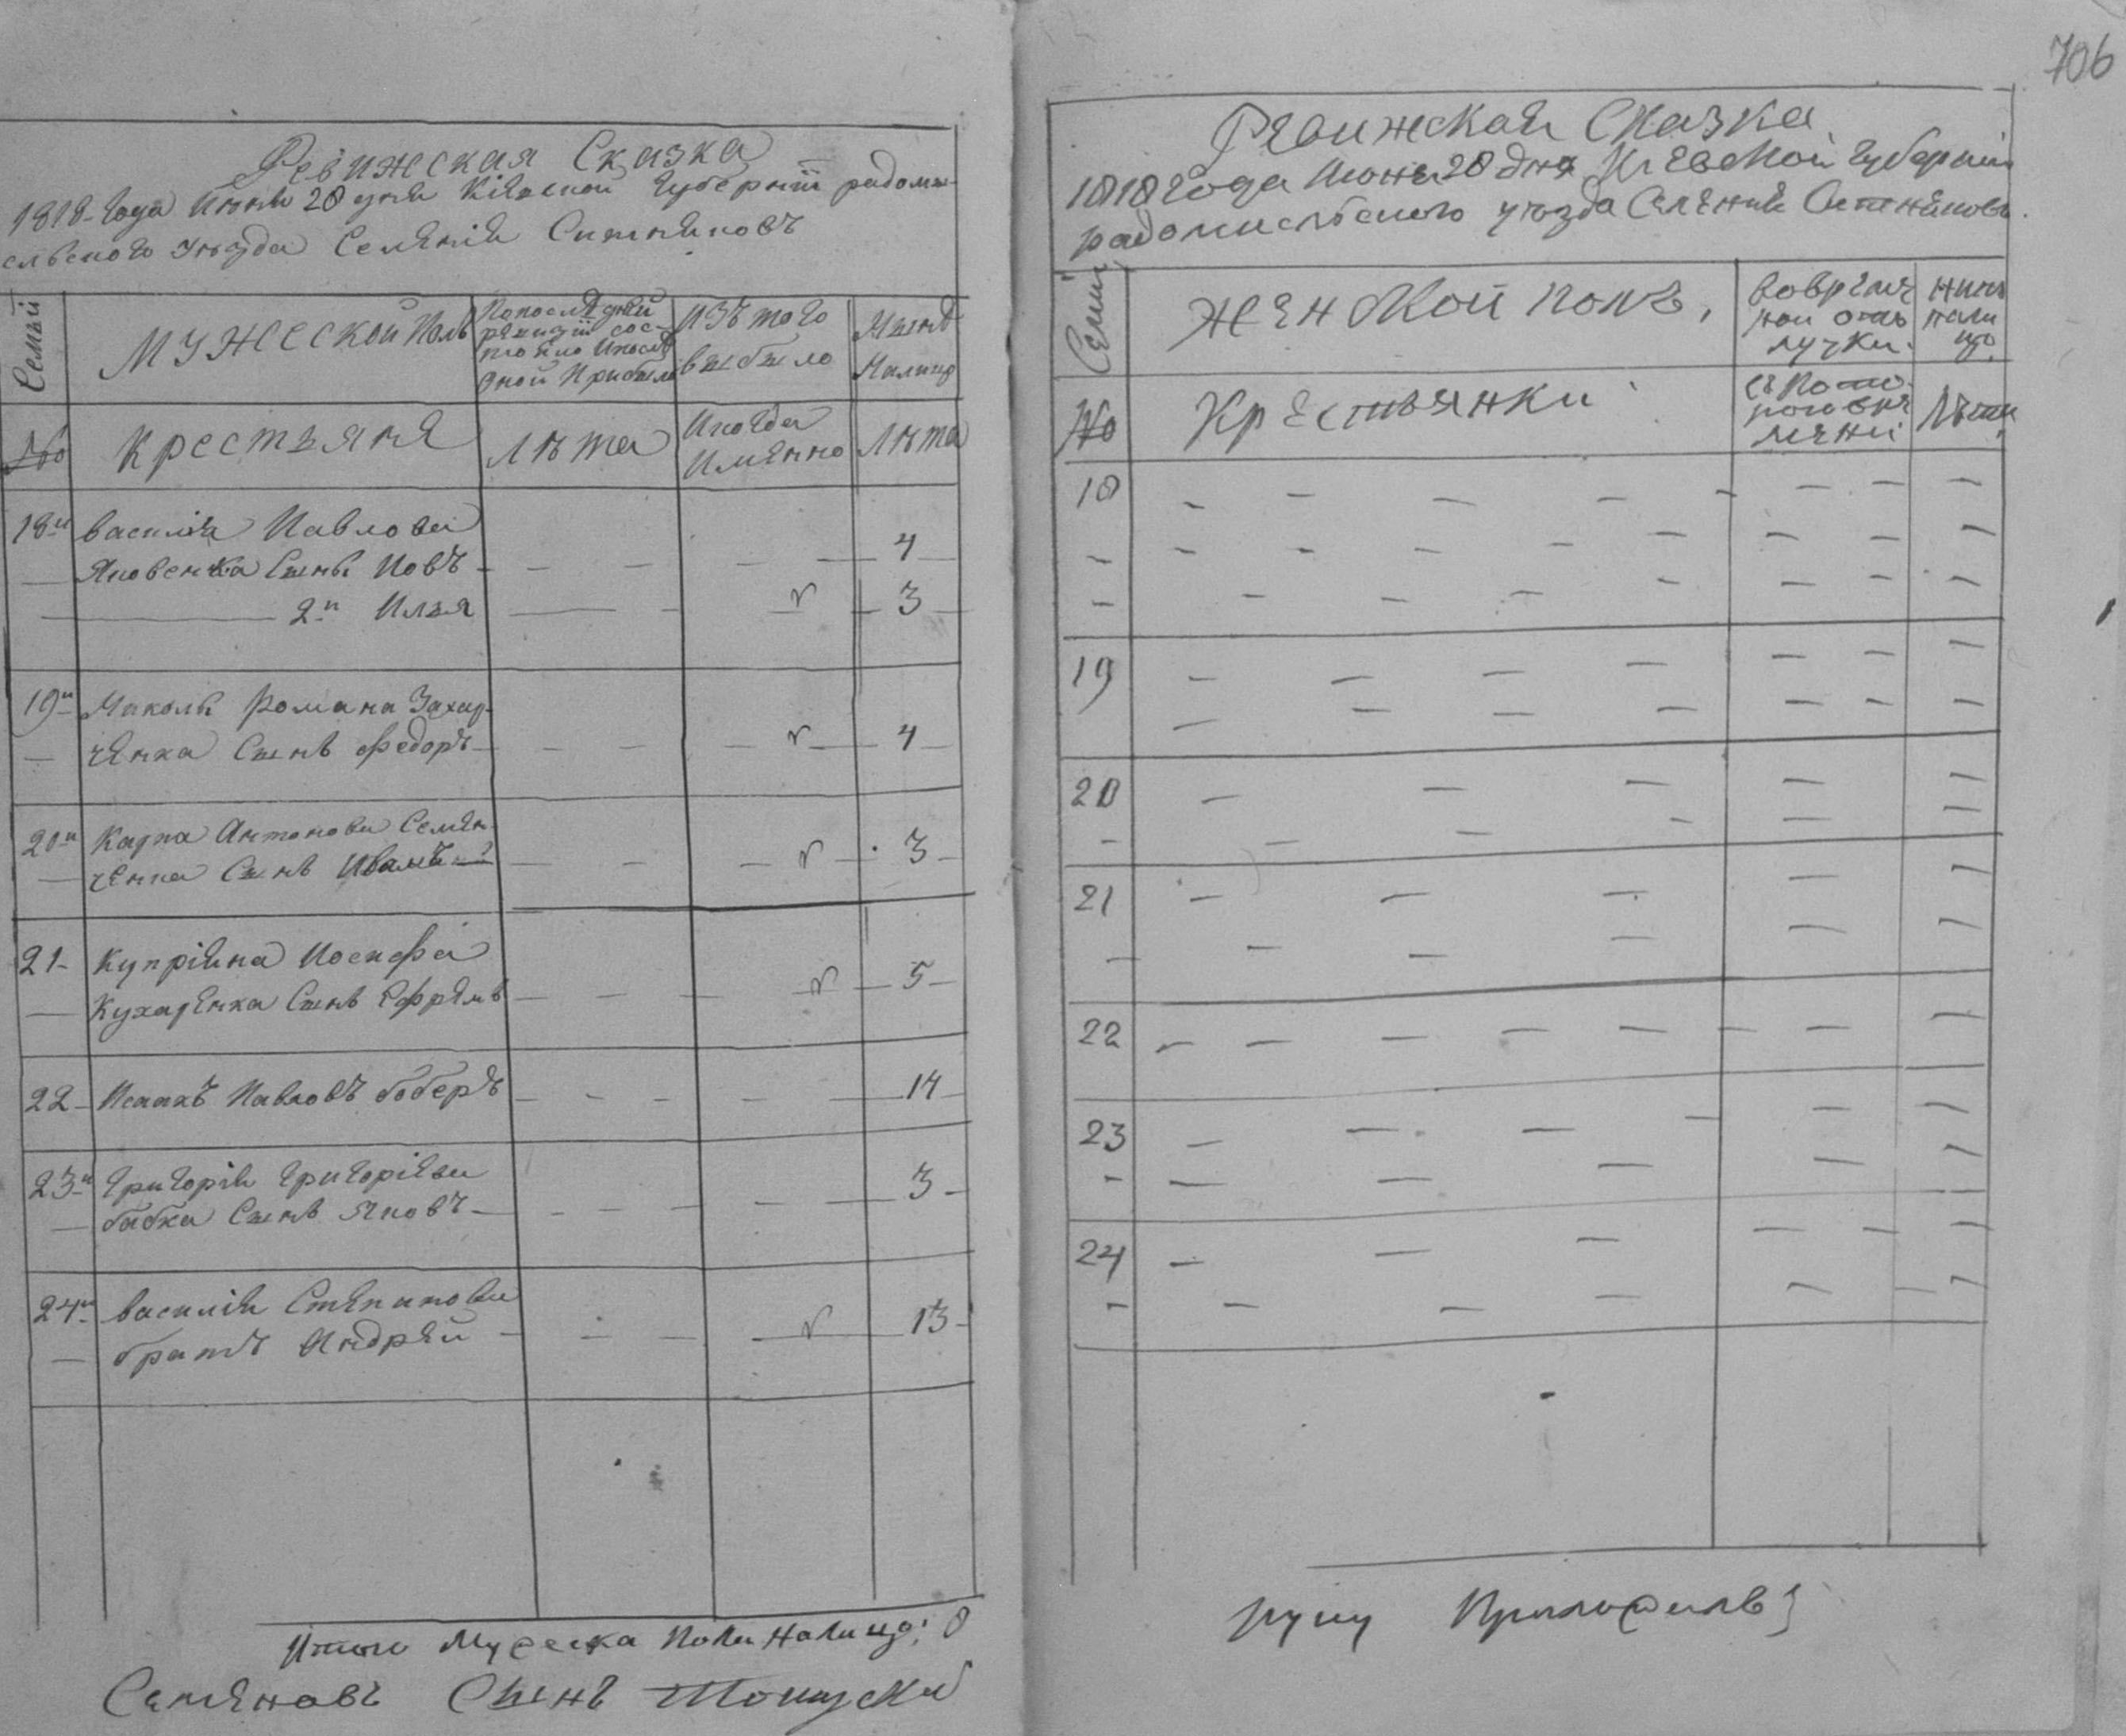 Ревижская Сказка
1818 Года Июня 28 дня Кіевской Губерніи радомы-
сльского уезда Селенія Ситняковъ
Семьи
Мужеской Полъ
По последней
ревизіи сос-
тояло и после
оной Прибыло
Изъ того
выбыло
Ныне
Налицо
№
Крестьяне
Лета
Когда
Именно
Лета
18й Василія Павлова
Яковенка Сынъ Иовъ 4
2й Илья 3
19й Миколы Романа Захар-
ченка Сынъ Федоръ 4
20й Карпа Антонова Семен-
ченка Сынъ Иванъ 3
21 Купріяна Иосифа
Кухаренка Сынъ Ефремъ 5
22 Исаакъ Павловъ боберъ 14
23й Григорія Григоріева
бабка Сынъ Яковъ 3
24й Василія Степанова
братъ Андрей 13
Итого Мужеска Пола Налицо: 8
Сынъ
706
Ревижская Сказка
1818 Года Июня 28 дня Киевской Губерніи
радомисльского уезда Селения Ситняковъ
Семьи
Женской полъ,
Вовремен
ной отлу
лучки.
Ныне
нали
цо.
№
Крестьянки
Лета
18
19
20
21
22
23
24
руку Приложилъ